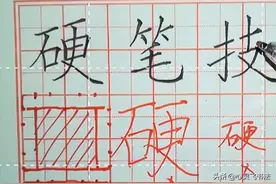 硬笔技
硬 硬
头条@心灵飞书法